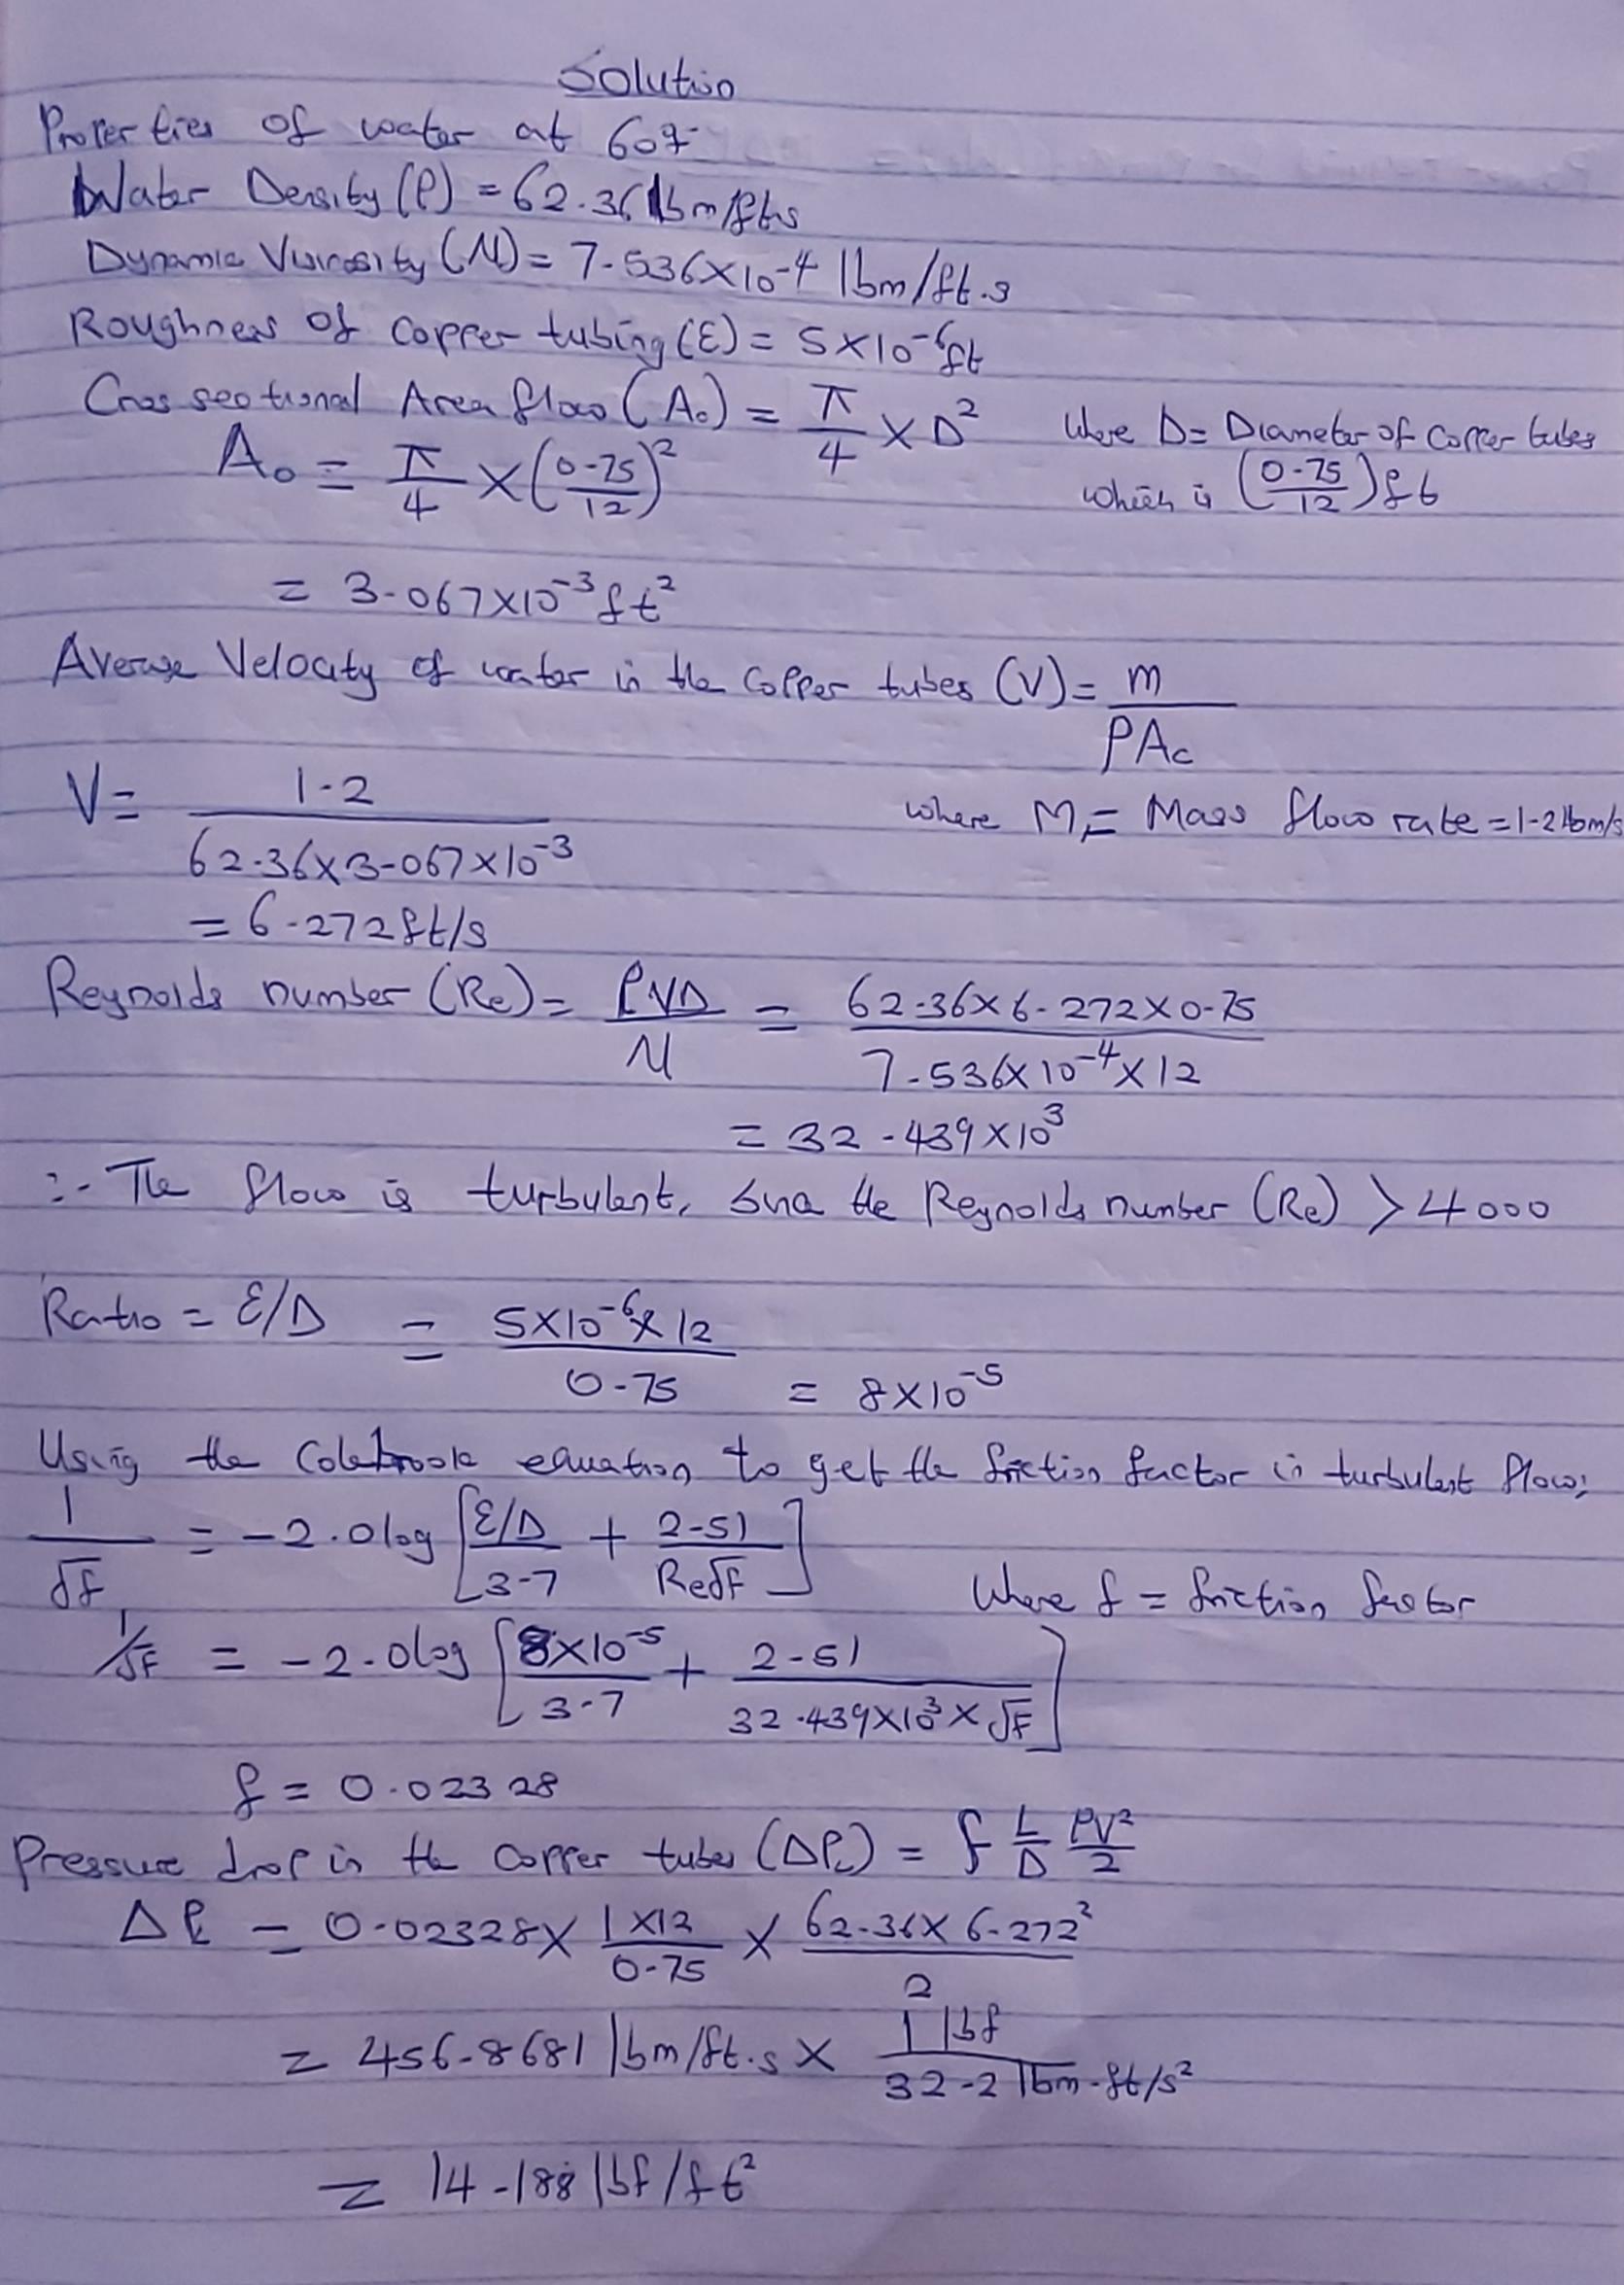 Solution
Properties of water at 60°F
Water Density (ρ) = 62.36 lbm/ft3
Dynamic Viscosity (μ) = 7.536×10⁻⁴ lbm/ft.s
Roughness of copper tubing (ε) = 5×10⁻⁶ft
Cross sectional Area flow (Ac) = π/4 × D² where D = Diameter of copper tubes
Ac = π/4 × (0.75/12)² which is (0.75/12) ft
= 3.067×10⁻³ ft²
Average Velocity of water in the copper tubes (V) = m/ρAc
V = 1.2/62.36×3.067×10⁻³ where M = Mass flow rate = 1.2 lbm/s
= 6.272ft/s
Reynolds number (Re) = ρVD/μ = 62.36×6.272×0.75/7.536×10⁻⁴×12
= 32.439×10³
∴ The flow is turbulent, since the Reynolds number (Re) > 4000
Ratio = ε/D = 5×10⁻⁶×12/0.75 = 8×10⁻⁵
Using the Colebrook equation to get the friction factor in turbulent flow;
1/√f = -2.0log [ε/D/3.7 + 2.51/Re√f] Where f = friction factor
1/√f = -2.0log [8×10⁻⁵/3.7 + 2.51/32.439×10³×√f]
f = 0.02328
Pressure drop in the copper tubes (ΔPL) = f L/D ρV²/2
ΔPL = 0.02328× 1×12/0.75 × 62.36×6.272²/2
= 456.8681 lbm/ft.s × 1 lbf/32.2 lbm.ft/s²
= 14.188 lbf/ft²